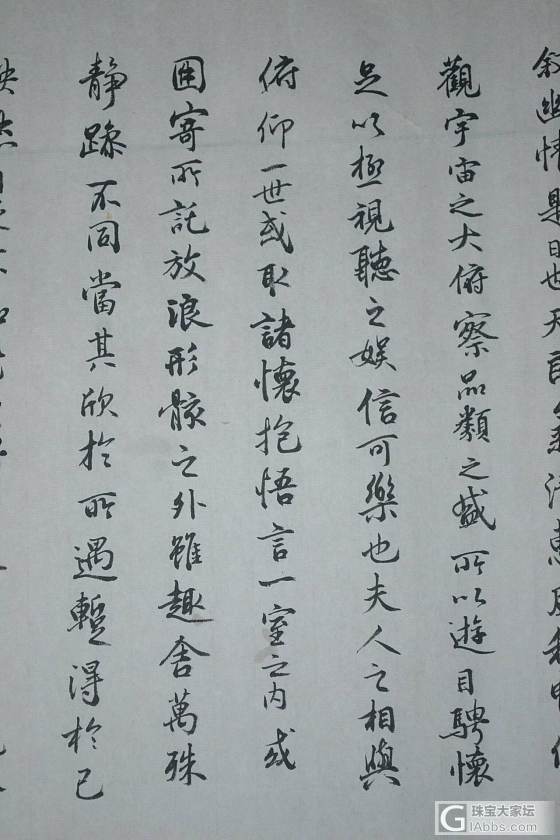 叙幽情是日也天朗氣清惠風和暢仰
觀宇宙之大俯察品類之盛所以遊目騁懷
足以極視聽之娱信可樂也夫人之相與
俯仰一世或取諸懷抱悟言一室之内或
因寄所託放浪形骸之外雖趣舍萬殊
静躁不同當其欣於所遇蹔得於己
珠宝大家坛
GIAbbs.com